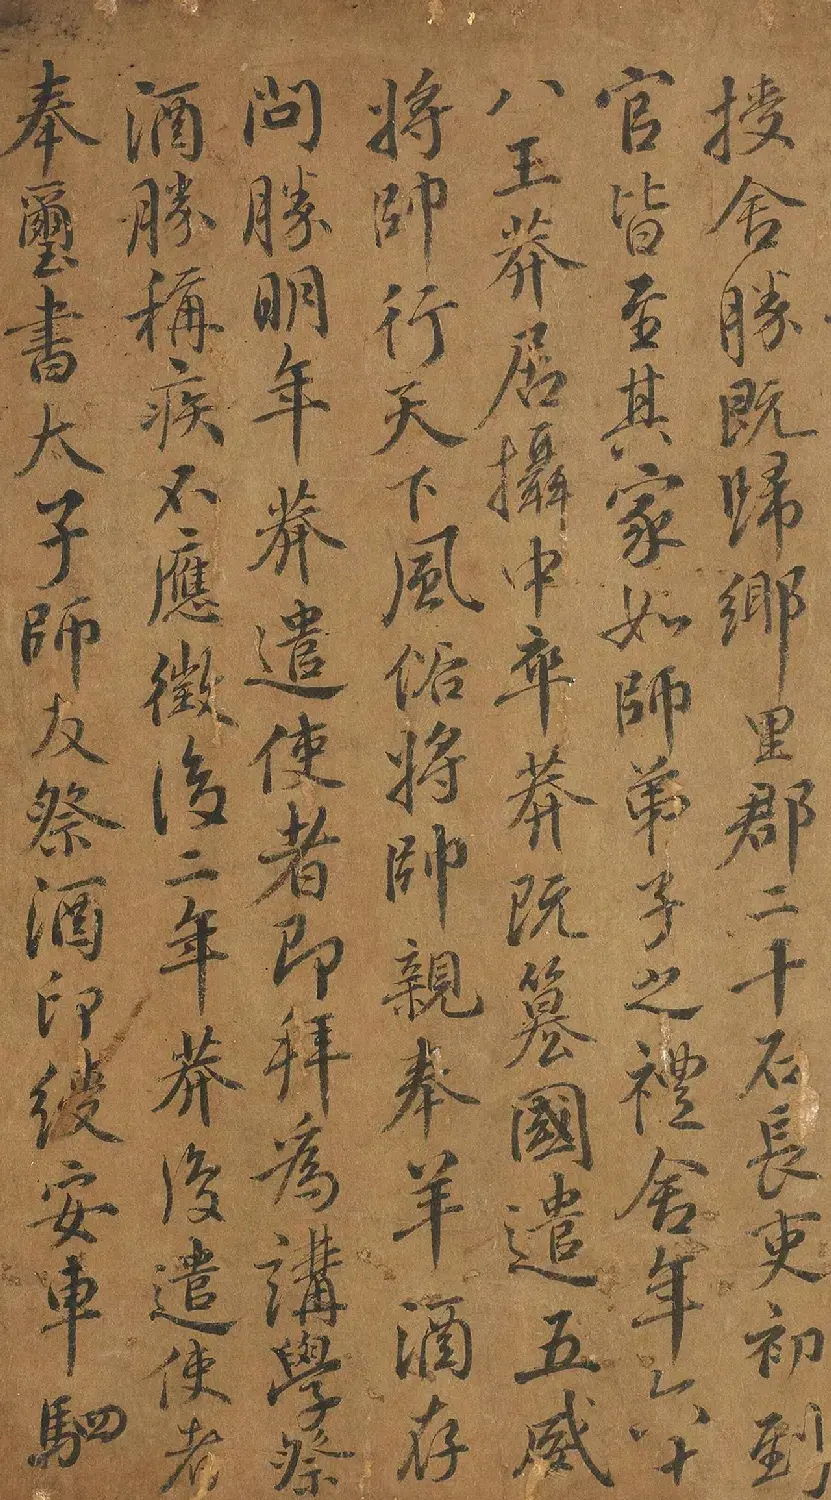 授舍勝既歸鄉里郡二千石長吏初到
官皆至其家如師弟子之禮舍年六十
八王莽居攝中卒莽既篡國遣五威
將帥行天下風俗將帥親奉羊酒存
問勝明年莽遣使者即拜為講學祭
酒勝稱疾不應徵後二年莽復遣使者
奉璽書太子師友祭酒印綬安車駟